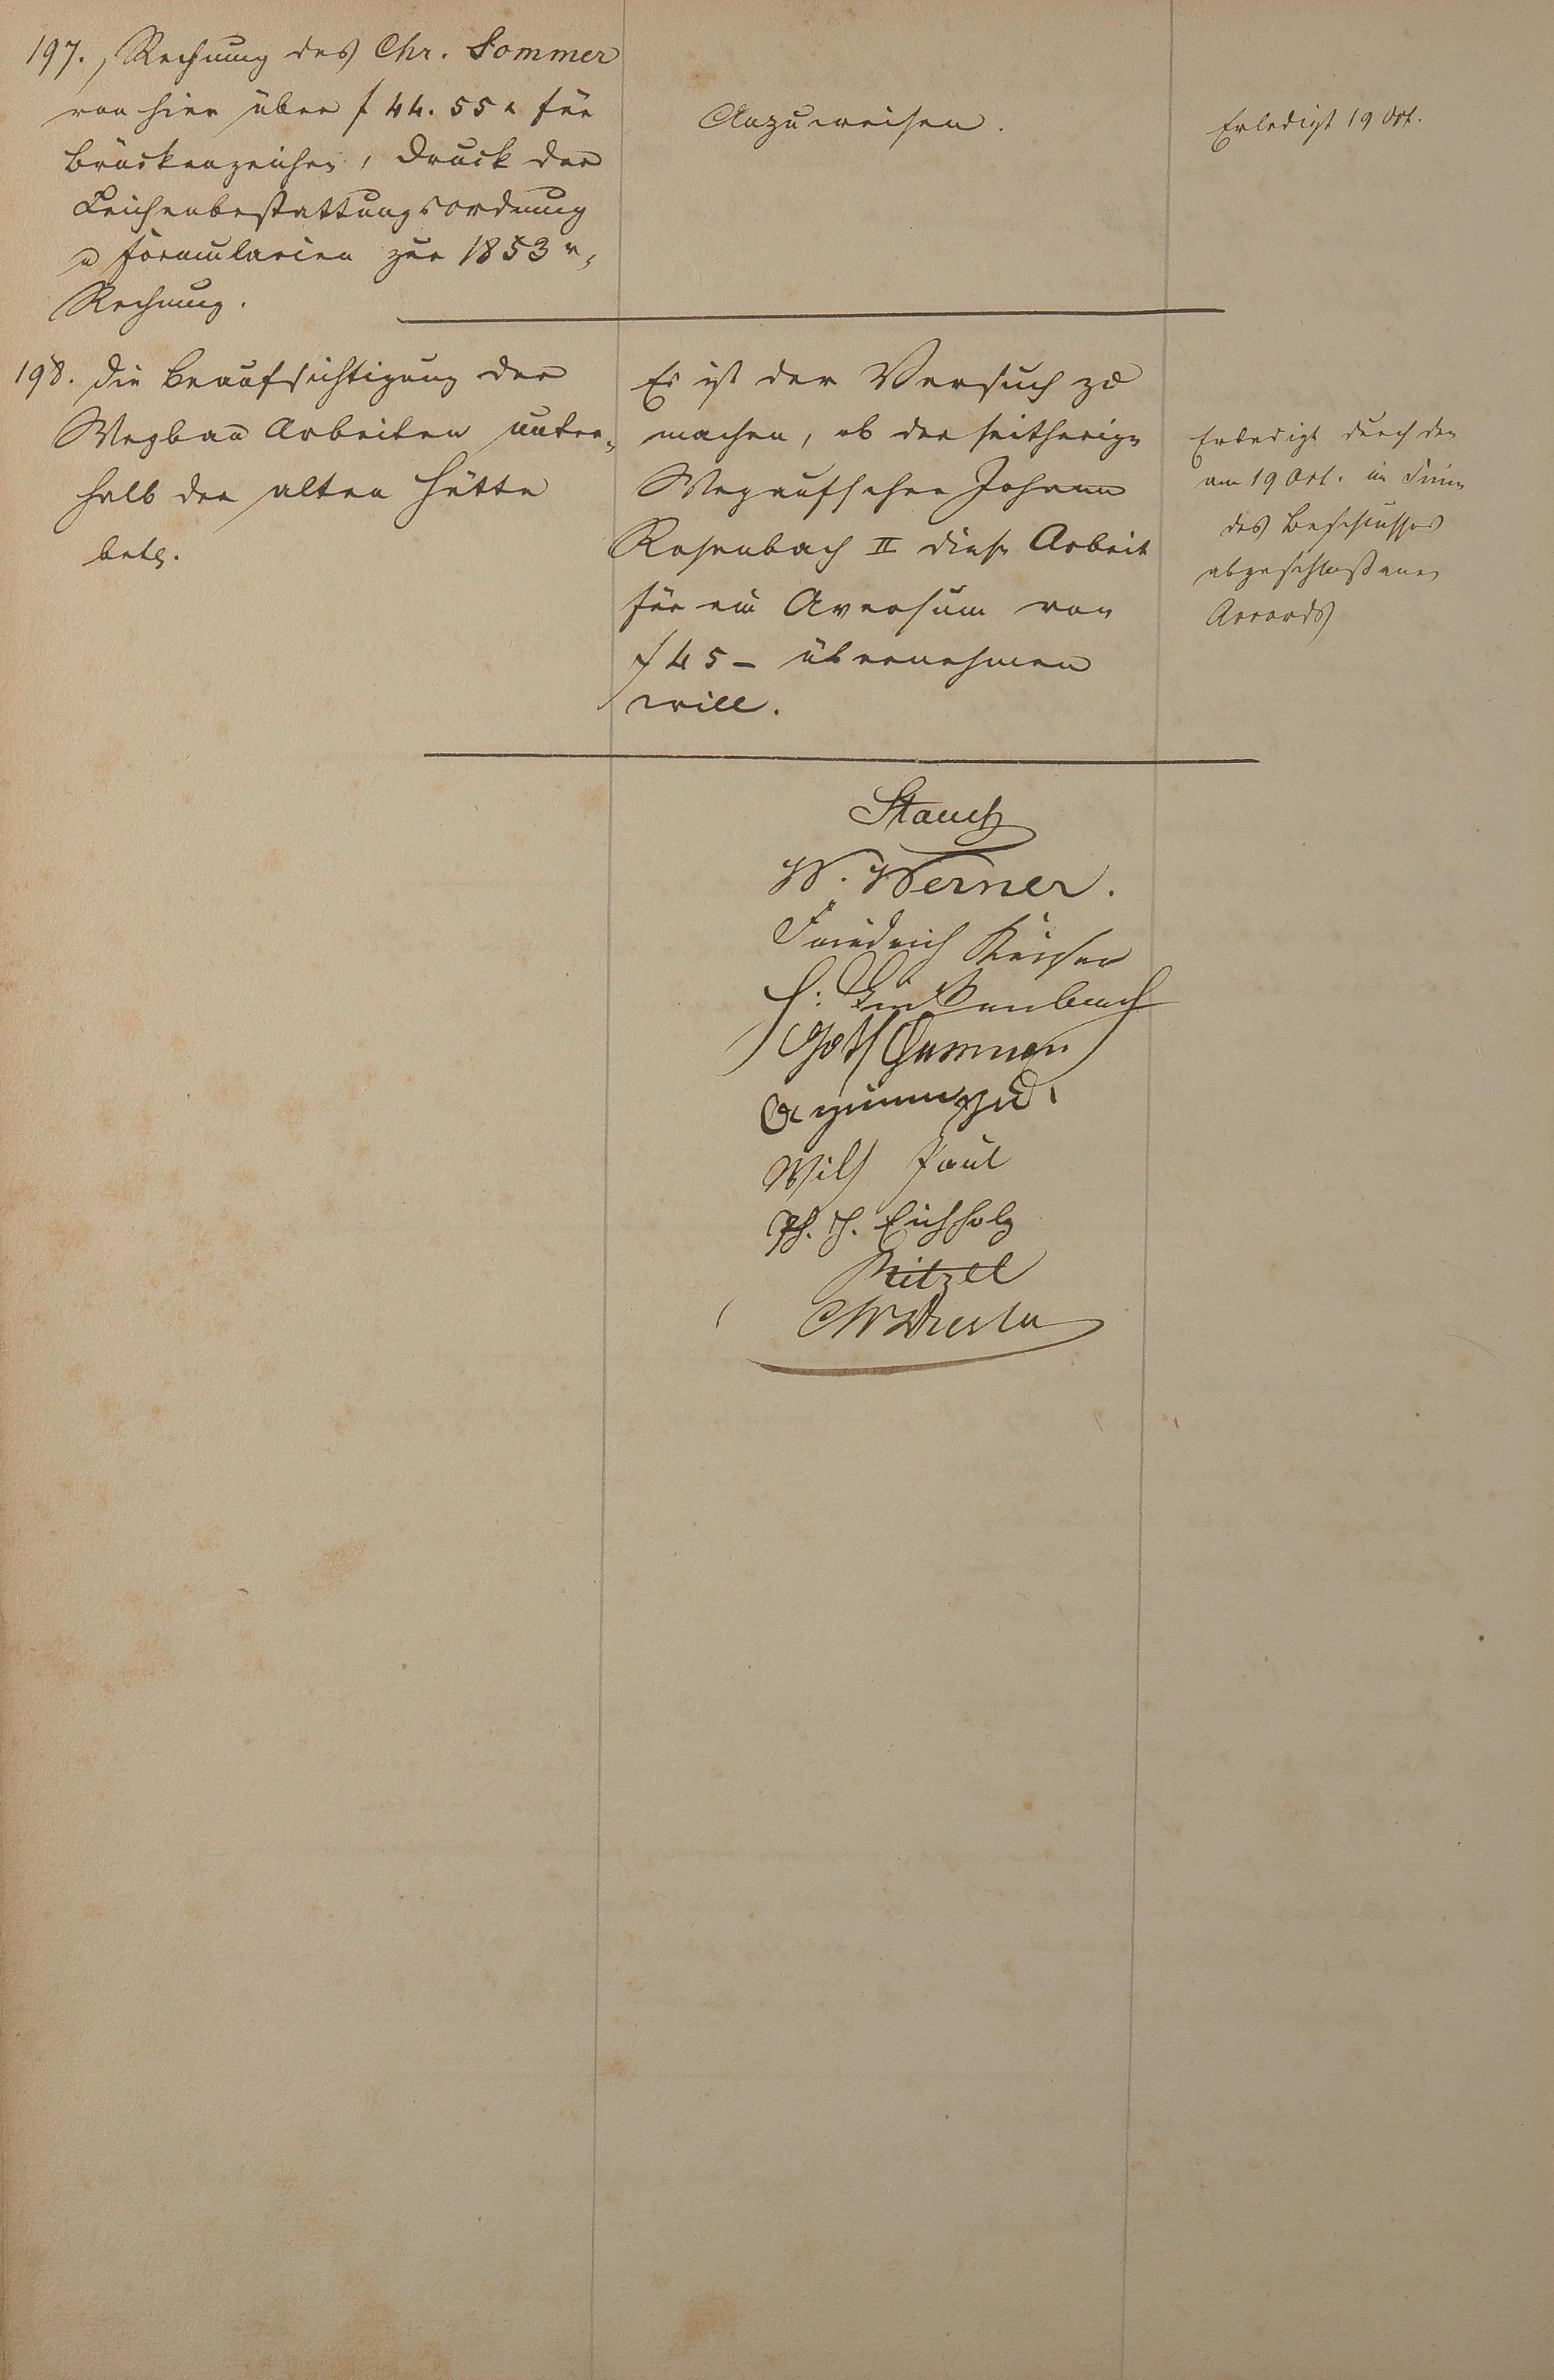 197. Rechnung des Chr. Sommer
von hier über f 44. 55 x für
Brückenzeichen, Druck der
Leichenbestattungsordnung
u Formularien zur 1853r
Rechnung.
Anzuweisen.
Erledigt 19 Oct.
198. Die Beaufsichtigung der
Wegbau Arbeiten unter-
halb der alten Hütte
betr.
Es ist der Versuch zu
machen, ob der seitherige
Wegaufseher Johann
Rosenbach II diese Arbeit
für ein Aversum von
f 45 – übernehmen
will.
Erledigt durch den
am 19 Oct. im Sinne
des Beschlusses
abgeschlossenen
Accords
Stauch
W. Werner.
Friedrich Kaiser
Wilh Paul
Ph. H. Eichholz
Ritzel